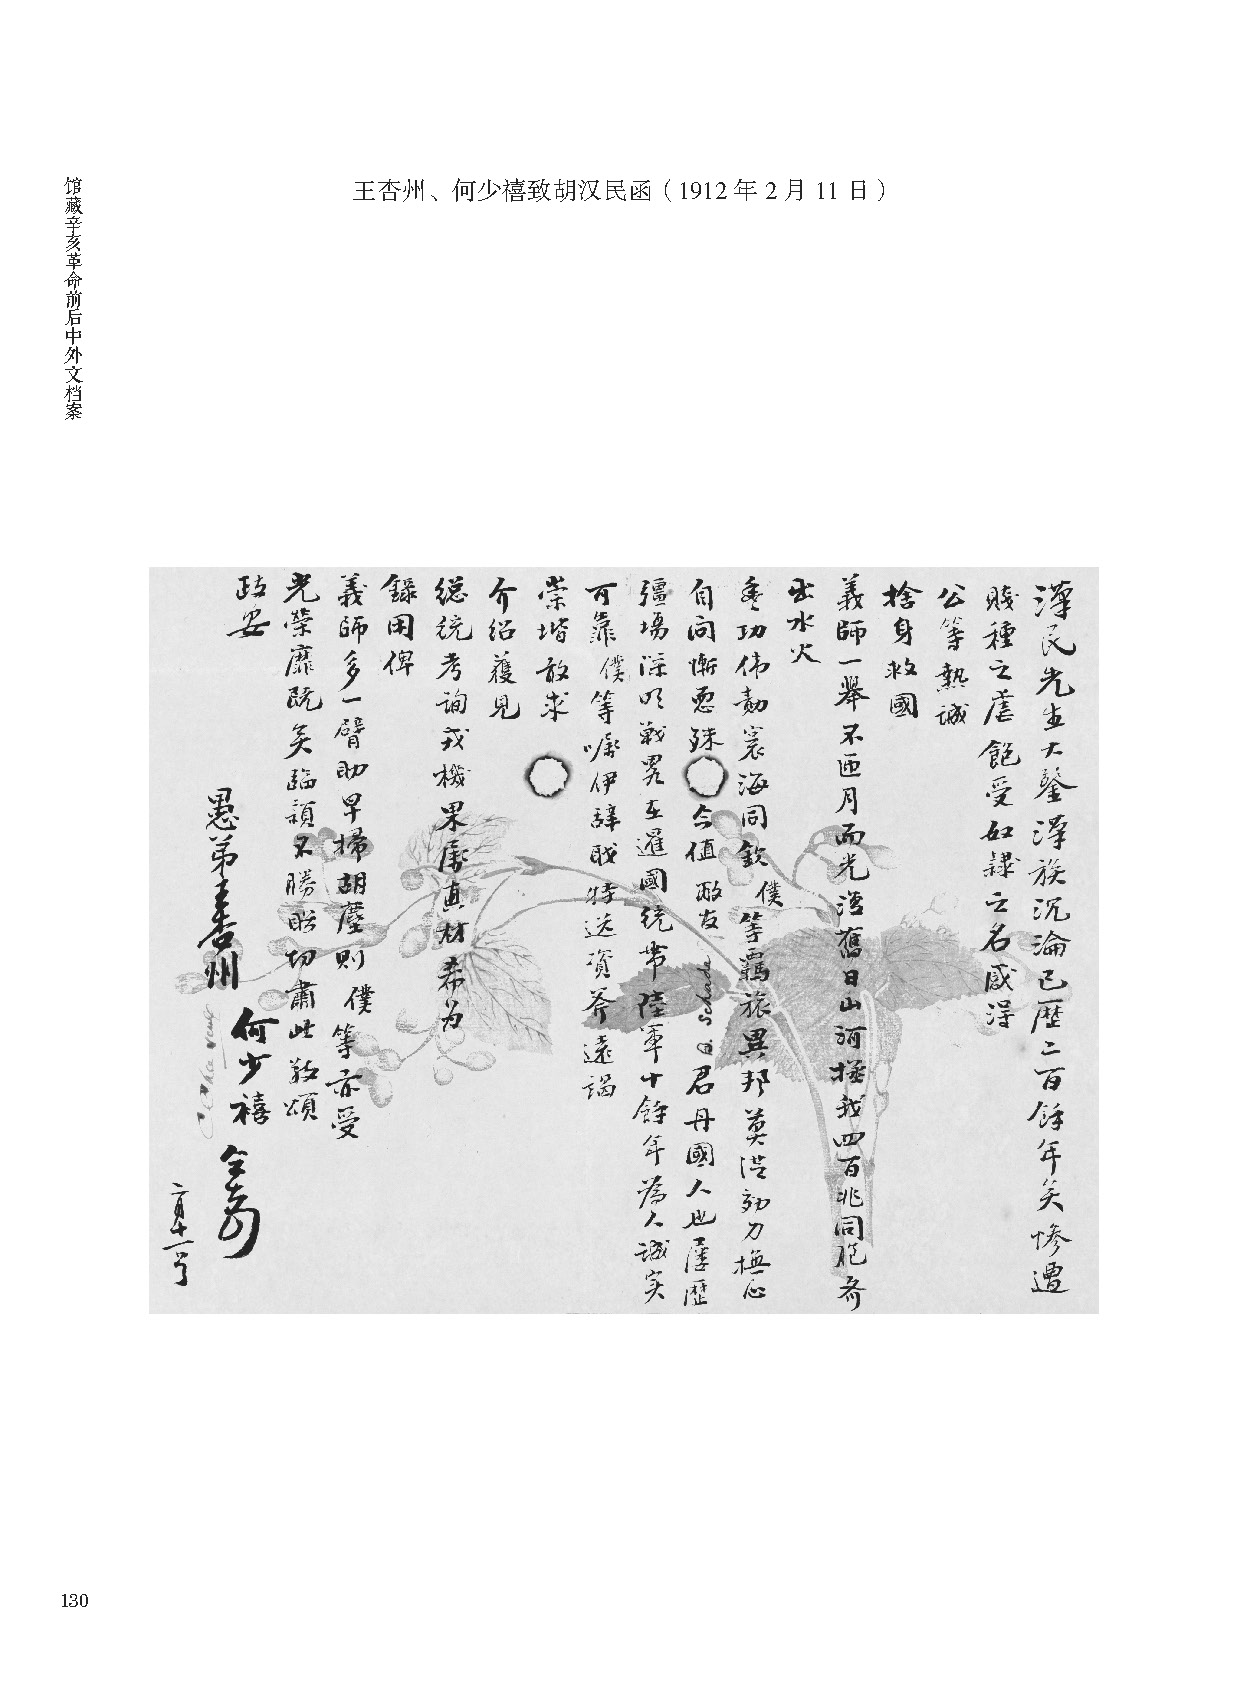 馆藏辛亥革命前后中外文档案
王杏州、何少禧致胡汉民函（1912 年 2 月 11 日）
漢民先生大鑒漢族沉淪已歷二百餘年矣慘遭
賤種之虐飽受奴隸之名咸得
公等熱誠
捨身救國
義師一舉不匝月而光復舊日山河拯我四百兆同胞齊
出水火
豐功伟勳寰海同欽僕等羈旅異邦莫從効力撫心
自问慚恧殊 今值敝友 A. Schade 君丹國人也屢歷
彊場深明戰畧在暹國统带陸軍十餘年為人誠实
可靠僕等嘱伊辞職特送資斧遠謁
崇堦敢求
介绍獲見
総统考询戎機果屬真材希为
録用俾
義師多一臂助早掃胡塵則僕等亦受
光榮靡既矣臨穎不勝盼切肅此敬頌
政安
愚弟王杏州
何少禧 仝啇
二月十一号
130